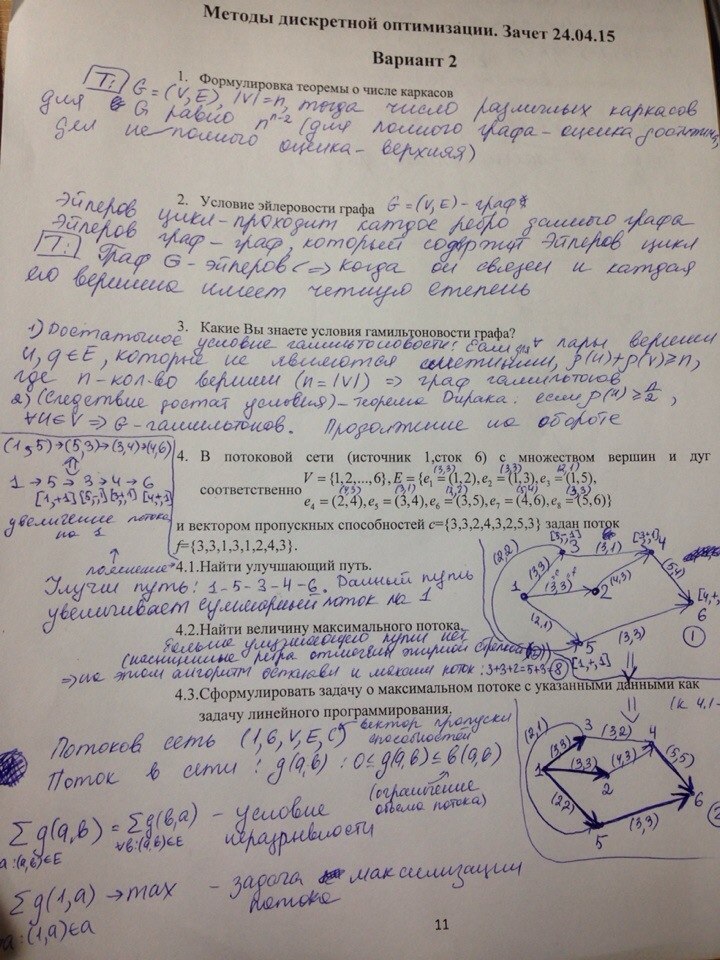 Методы дискретной оптимизации. Зачет 24.04.15
Вариант 2
1. Формулировка теоремы о числе каркасов
Т: G = (V, E), |V| = n, тогда число различных каркасов
для G равно n^{n-2} (для полного графа - оценка
для неполного оценка - верхняя)
2. Условие эйлеровости графа G = (V, E) - граф
Эйлеров цикл - проходит каждое ребро данного графа
Эйлеров граф - граф, который содержит Эйлеров цикл
Т: Граф G - эйлеров <=> когда он связен и каждая
его вершина имеет четную степень
3. Какие Вы знаете условия гамильтоновости графа?
1) Достаточное условие гамильтоновости: Если для ∀ пары вершин
которые не являются смежными, ρ(u)+ρ(v)≥n,
где n - кол-во вершин (n = |V|) => граф гамильтонов
2) (Следствие достат условия) - теорема Дирака: если ρ(u) ≥ n/2,
∀u∈V => G - гамильтонов. Продолжение на обороте
(1,5)→(5,3)→(3,4)→(4,6)
⇑
1 → 5 → 3 → 4 → 6
увеличение потока
на 1
4. В потоковой сети (источник 1,сток 6) с множеством вершин и дуг
V = {1,2,...,6}, E = {e₁ = (1,2), e₂ = (1,3), e₃ = (1,5),
соответственно
e₄ = (2,4), e₅ = (3,4), e₆ = (3,5), e₇ = (4,6), e₈ = (5,6)}
и вектором пропускных способностей c={3,3,2,4,3,2,5,3} задан поток
f={3,3,1,3,1,2,4,3}.
4.1.Найти улучшающий путь.
пояснение
Улучш путь: 1-5-3-4-6. Данный путь
увеличивает суммарный поток на 1
4.2.Найти величину максимального потока.
Больше улучшающего пути нет
(насыщенные ребра отмечены жирной стрелкой
=> на этом алгоритм остановки и максим поток: 3+3+2=5+3=8
4.3.Сформулировать задачу о максимальном потоке с указанными данными как
задачу линейного программирования.
вектор пропуски
способностей
Потоков сеть (1, 6, V, E, C)
Поток в сети: g(a,b): 0 ≤ g(a,b) ≤ b(a,b)
(ограничение
объема потока)
Σ g(a,b) = Σ g(b,a) - условие
a:(a,b)∈E ∀b:(a,b)∈E неразрывности
Σ g(1,a) → max - задача максимизации
a:(1,a)∈a потока
(2,2) 3 (3,1) 4
(3,3) (3,3) 2 (4,3) (5,4)
1 (2,1) 5 (3,3) 6
[1,+,1] ①
(к 4.1
(2,1) 3 (3,2) 4
(3,3) (3,3) (4,3) (5,5)
1 2
(2,2) 5 (3,3) 6
11